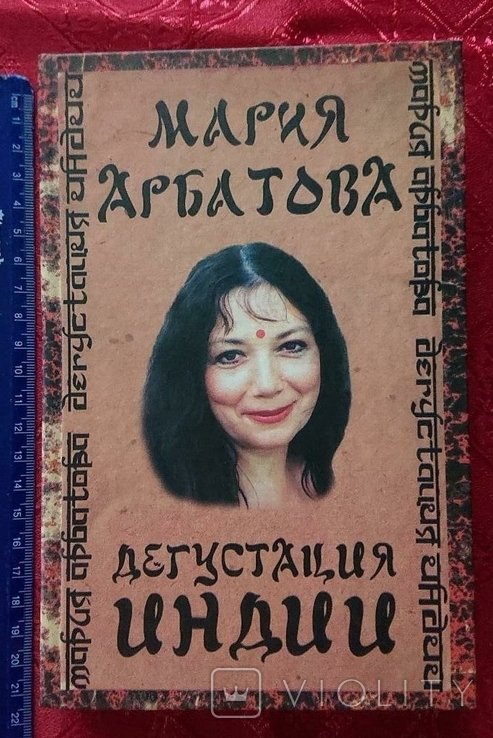 МАРИЯ
АРБАТОВА
ДЕГУСТАЦИЯ
ИНДИИ
мария арбатова дегустация индии
мария арбатова дегустация индии
cm 1 2 3 4 5 6 7 8 9 10 11 12 13 14 15 16 17 18 19 20 21 22
VIOLITY